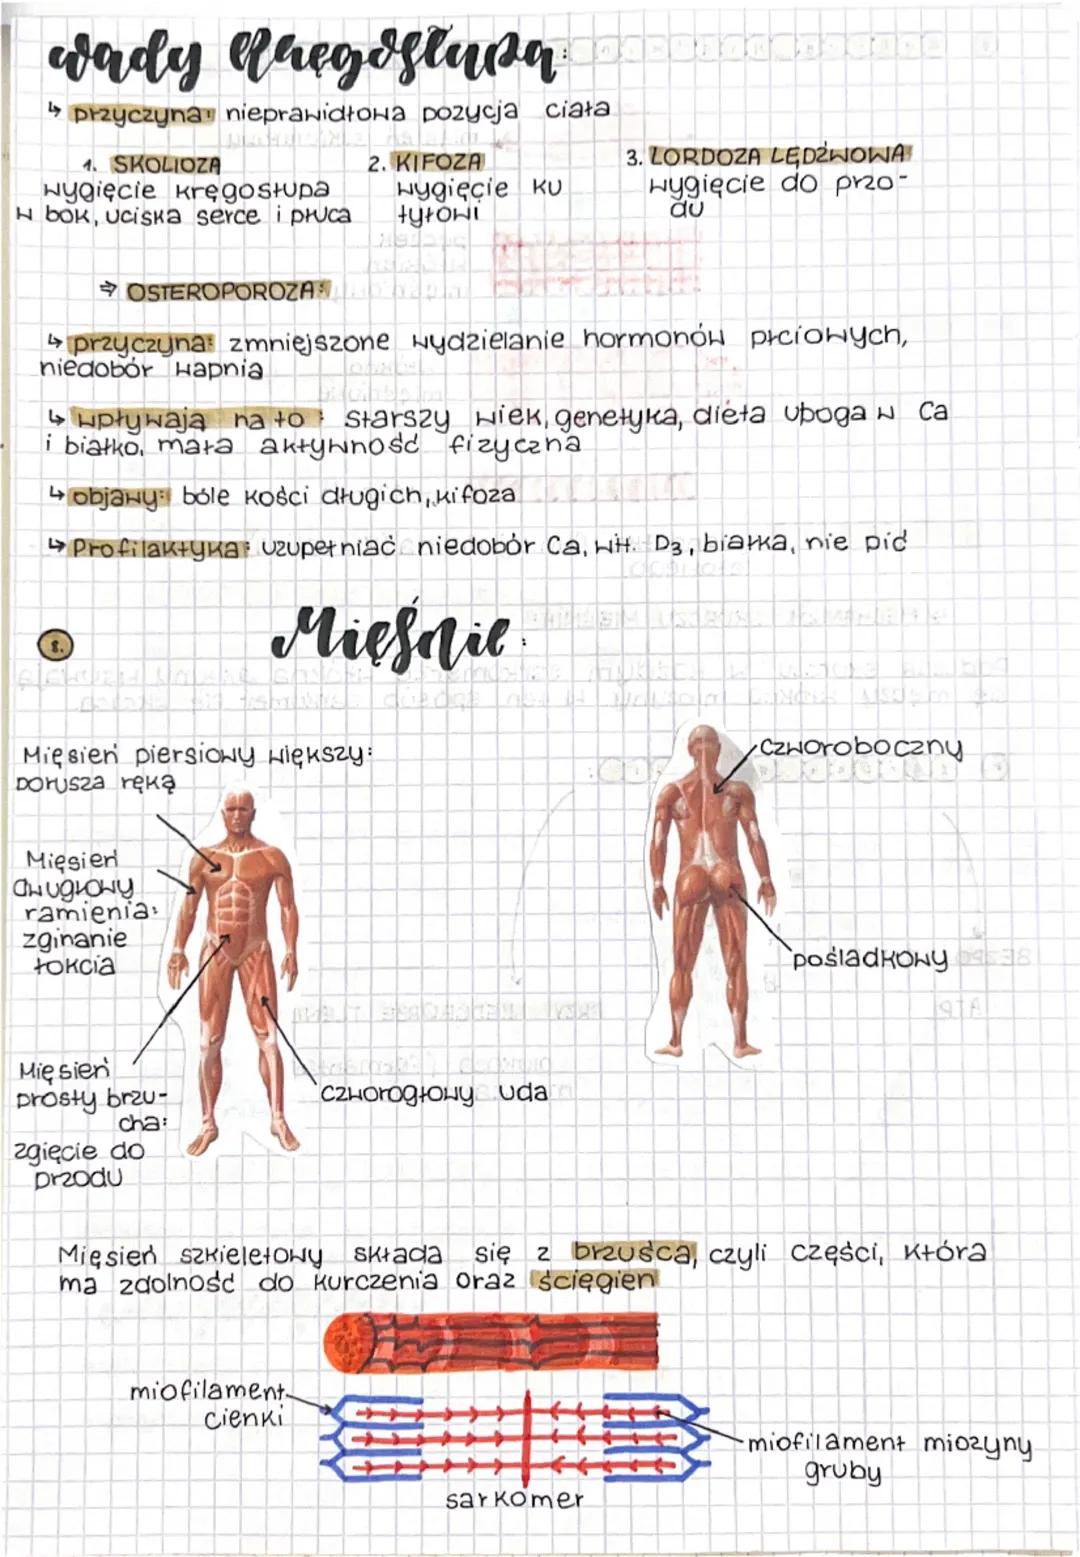 wady kręgosłupa:
↳ przyczyna: nieprawidłowa pozycja ciała
1. SKOLIOZA
wygięcie kręgosłupa
w bok, uciska serce i płuca
2. KIFOZA
wygięcie ku
tyłowi
3. LORDOZA LĘDŹWOWA
wygięcie do przo-
du
⇒ OSTEROPOROZA:
↳ przyczyna: zmniejszone wydzielanie hormonów płciowych,
niedobór wapnia
↳ wpływają na to: starszy wiek, genetyka, dieta uboga w Ca
i białko, mała aktywność fizyczna
↳ objawy: bóle kości długich, kifoza
↳ Profilaktyka: uzupełniać niedobór Ca, wit. D3, białka, nie pić
8.
Mięśnie:
Mięsień piersiowy większy:
porusza ręką
czworoboczny
Mięsień
dwugłowy
ramienia:
zginanie
łokcia
pośladkowy
Mięsień
prosty brzu-
cha:
zgięcie do
przodu
czworogłowy uda
Mięsień szkieletowy składa się z brzuśca, czyli części, która
ma zdolność do kurczenia oraz ścięgien
miofilament
cienki
miofilament miozyny
gruby
sarkomer